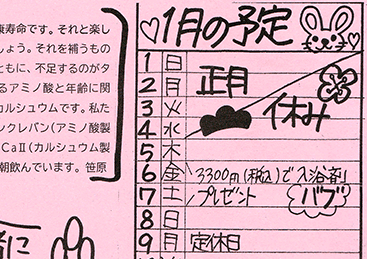 康寿命です。それと楽し
しょう。それを補うもの
ともに、不足するのがタ
るアミノ酸と年齢に関
カルシュウムです。私た
ンクレバン(アミノ酸製
CaⅡ(カルシュウム製
朝飲んでいます。笹原
1月の予定
1 日
2 月 正月
3 火 休み
4 水
5 木
6 金 3300円(税込)で入浴剤
7 土 プレゼント バブ
8 日
9 月 定休日